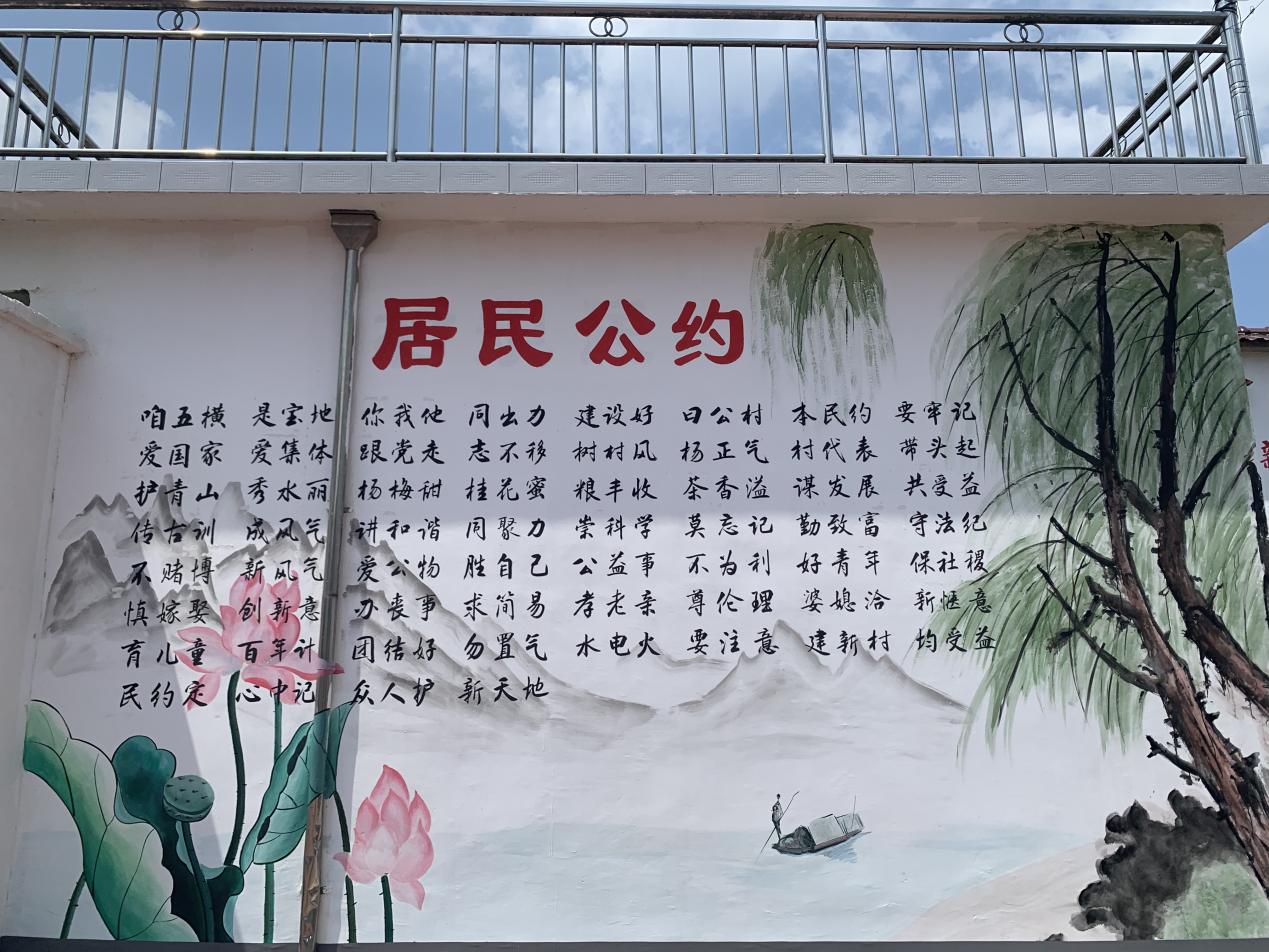 居民公约
咱五横 是宝地 你我他 同出力 建设好 日公村 本民约 要牢记
爱国家 爱集体 跟党走 志不移 树村风 杨正气 村代表 带头起
护青山 秀水丽 杨梅甜 桂花蜜 粮丰收 茶香溢 谋发展 共受益
传古训 成风气 讲和谐 同聚力 崇科学 莫忘记 勤致富 守法纪
不赌博 新风气 爱公物 胜自己 公益事 不为利 好青年 保社稷
慎嫁娶 创新意 办丧事 求简易 孝老亲 尊伦理 婆媳洽 新惬意
育儿童 百年计 团结好 勿置气 水电火 要注意 建新村 均受益
民约定 心中记 众人护 新天地